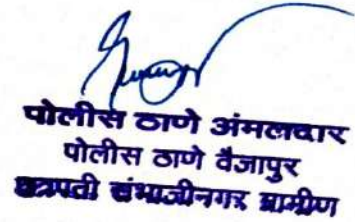 पोलीस ठाणे अंमलदार
पोलीस ठाणे वैजापुर
छत्रपती संभाजीनगर ग्रामीण